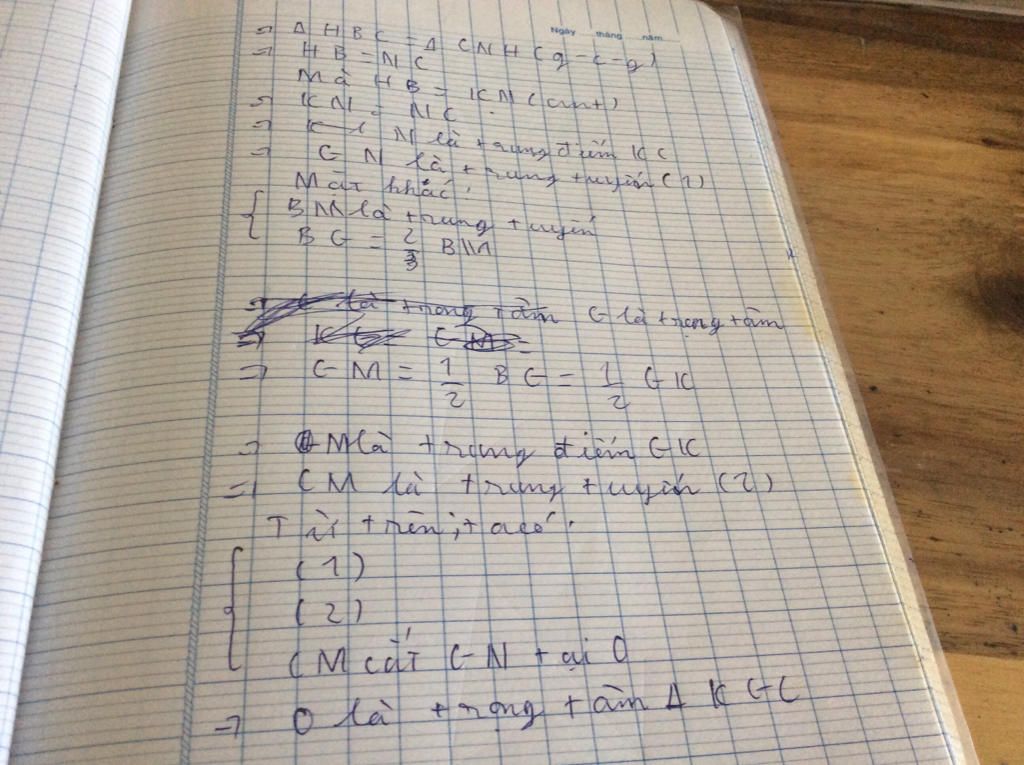 Ngày tháng năm
=> Δ HBC = Δ CNH (g-c-g)
=> HB = NC
Mà HB = KN (cmt)
=> KN = NC
=> N là trung điểm KC
=> GN là trung tuyến (1)
Mặt khác:
BM là trung tuyến
BG = 2/3 BM
=> G là trọng tâm
=> GM = 1/2 BG = 1/2 GK
=> M là trung điểm GK
=> CM là trung tuyến (2)
Từ trên, ta có:
(1)
(2)
CM cắt GN tại O
=> O là trọng tâm Δ KGC